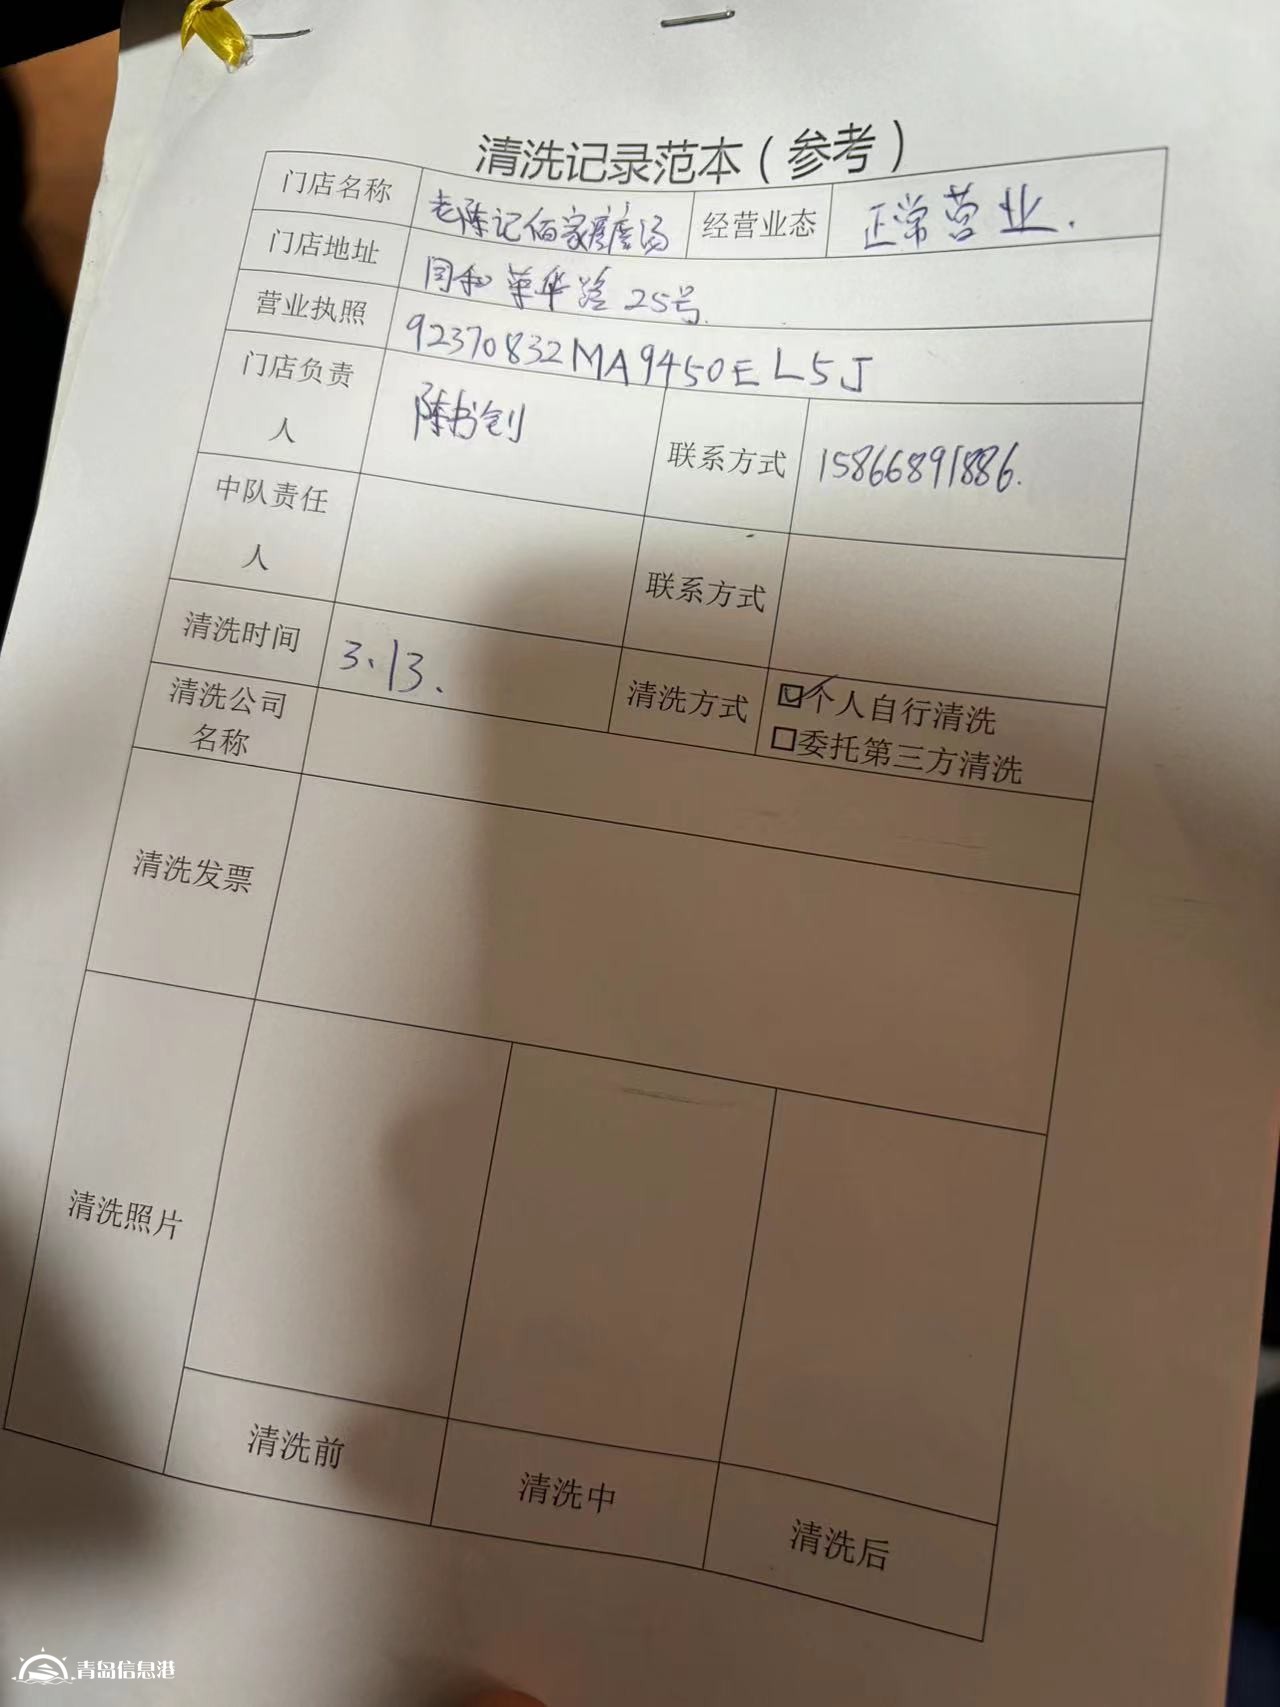 清洗记录范本（参考）
门店名称 老陈记佰家 经营业态 正常营业.
门店地址 同和 华路25号.
营业执照 92370832MA9450EL5J
门店负责人 陈书钊 联系方式 15866891886.
中队责任人 联系方式
清洗时间 3.13. 清洗方式 ☑个人自行清洗
□委托第三方清洗
清洗公司名称
清洗发票
清洗照片
清洗前 清洗中 清洗后
青岛信息港